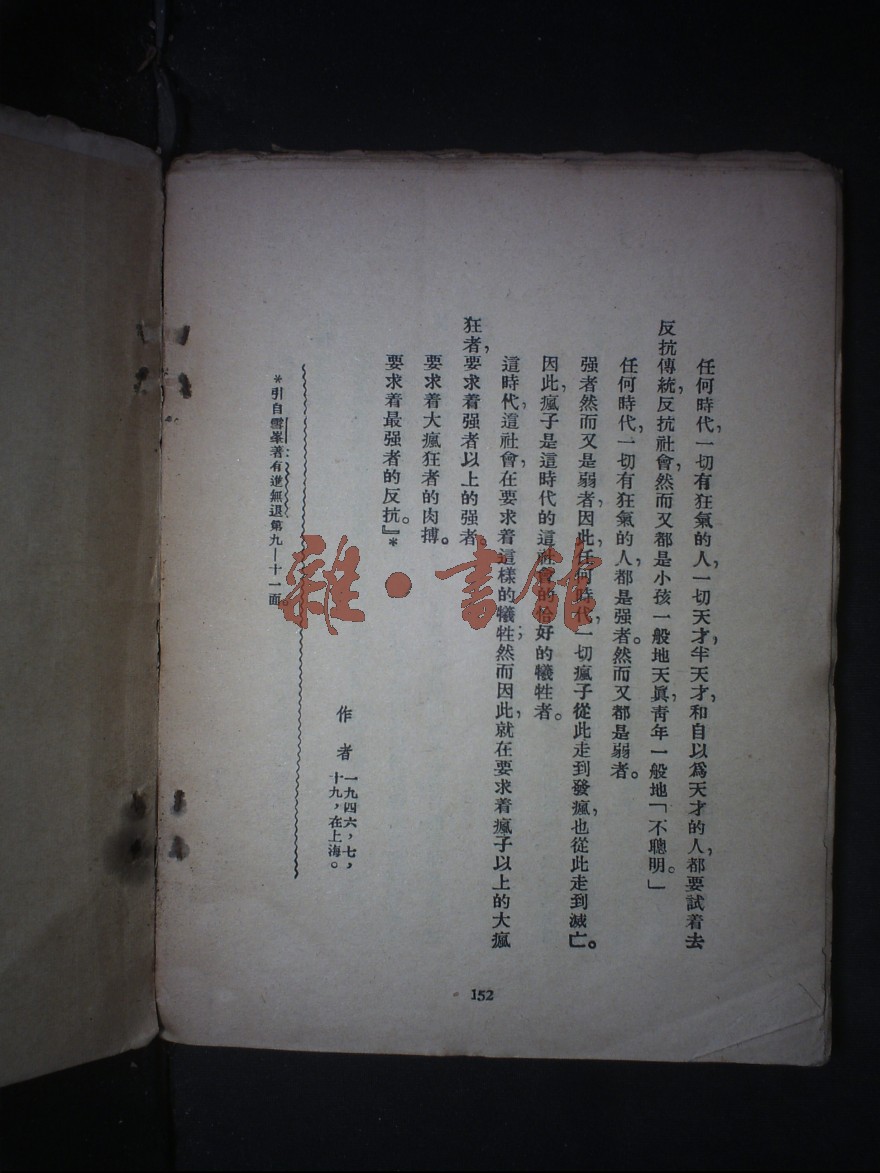 任何時代，一切有狂氣的人，一切天才，半天才，和自以爲天才的人，都要試着去
反抗傳統，反抗社會，然而又都是小孩一般地天眞，靑年一般地「不聰明。」
任何時代，一切有狂氣的人，都是强者。然而又都是弱者。
强者然而又是弱者，因此，任何時代，一切瘋子從此走到發瘋，也從此走到滅亡。
因此，瘋子是這時代的這社會的恰好的犧牲者。
這時代，這社會，在要求着這樣的犧牲；然而因此，就在要求着瘋子以上的大瘋
狂者，要求着强者以上的强者。
要求着大瘋狂者的肉搏。
要求着最强者的反抗。』*
作者 一九四六，七，
十九，在上海。
*引自雪峯著：有進無退第九—十一面。
152
雜·書館